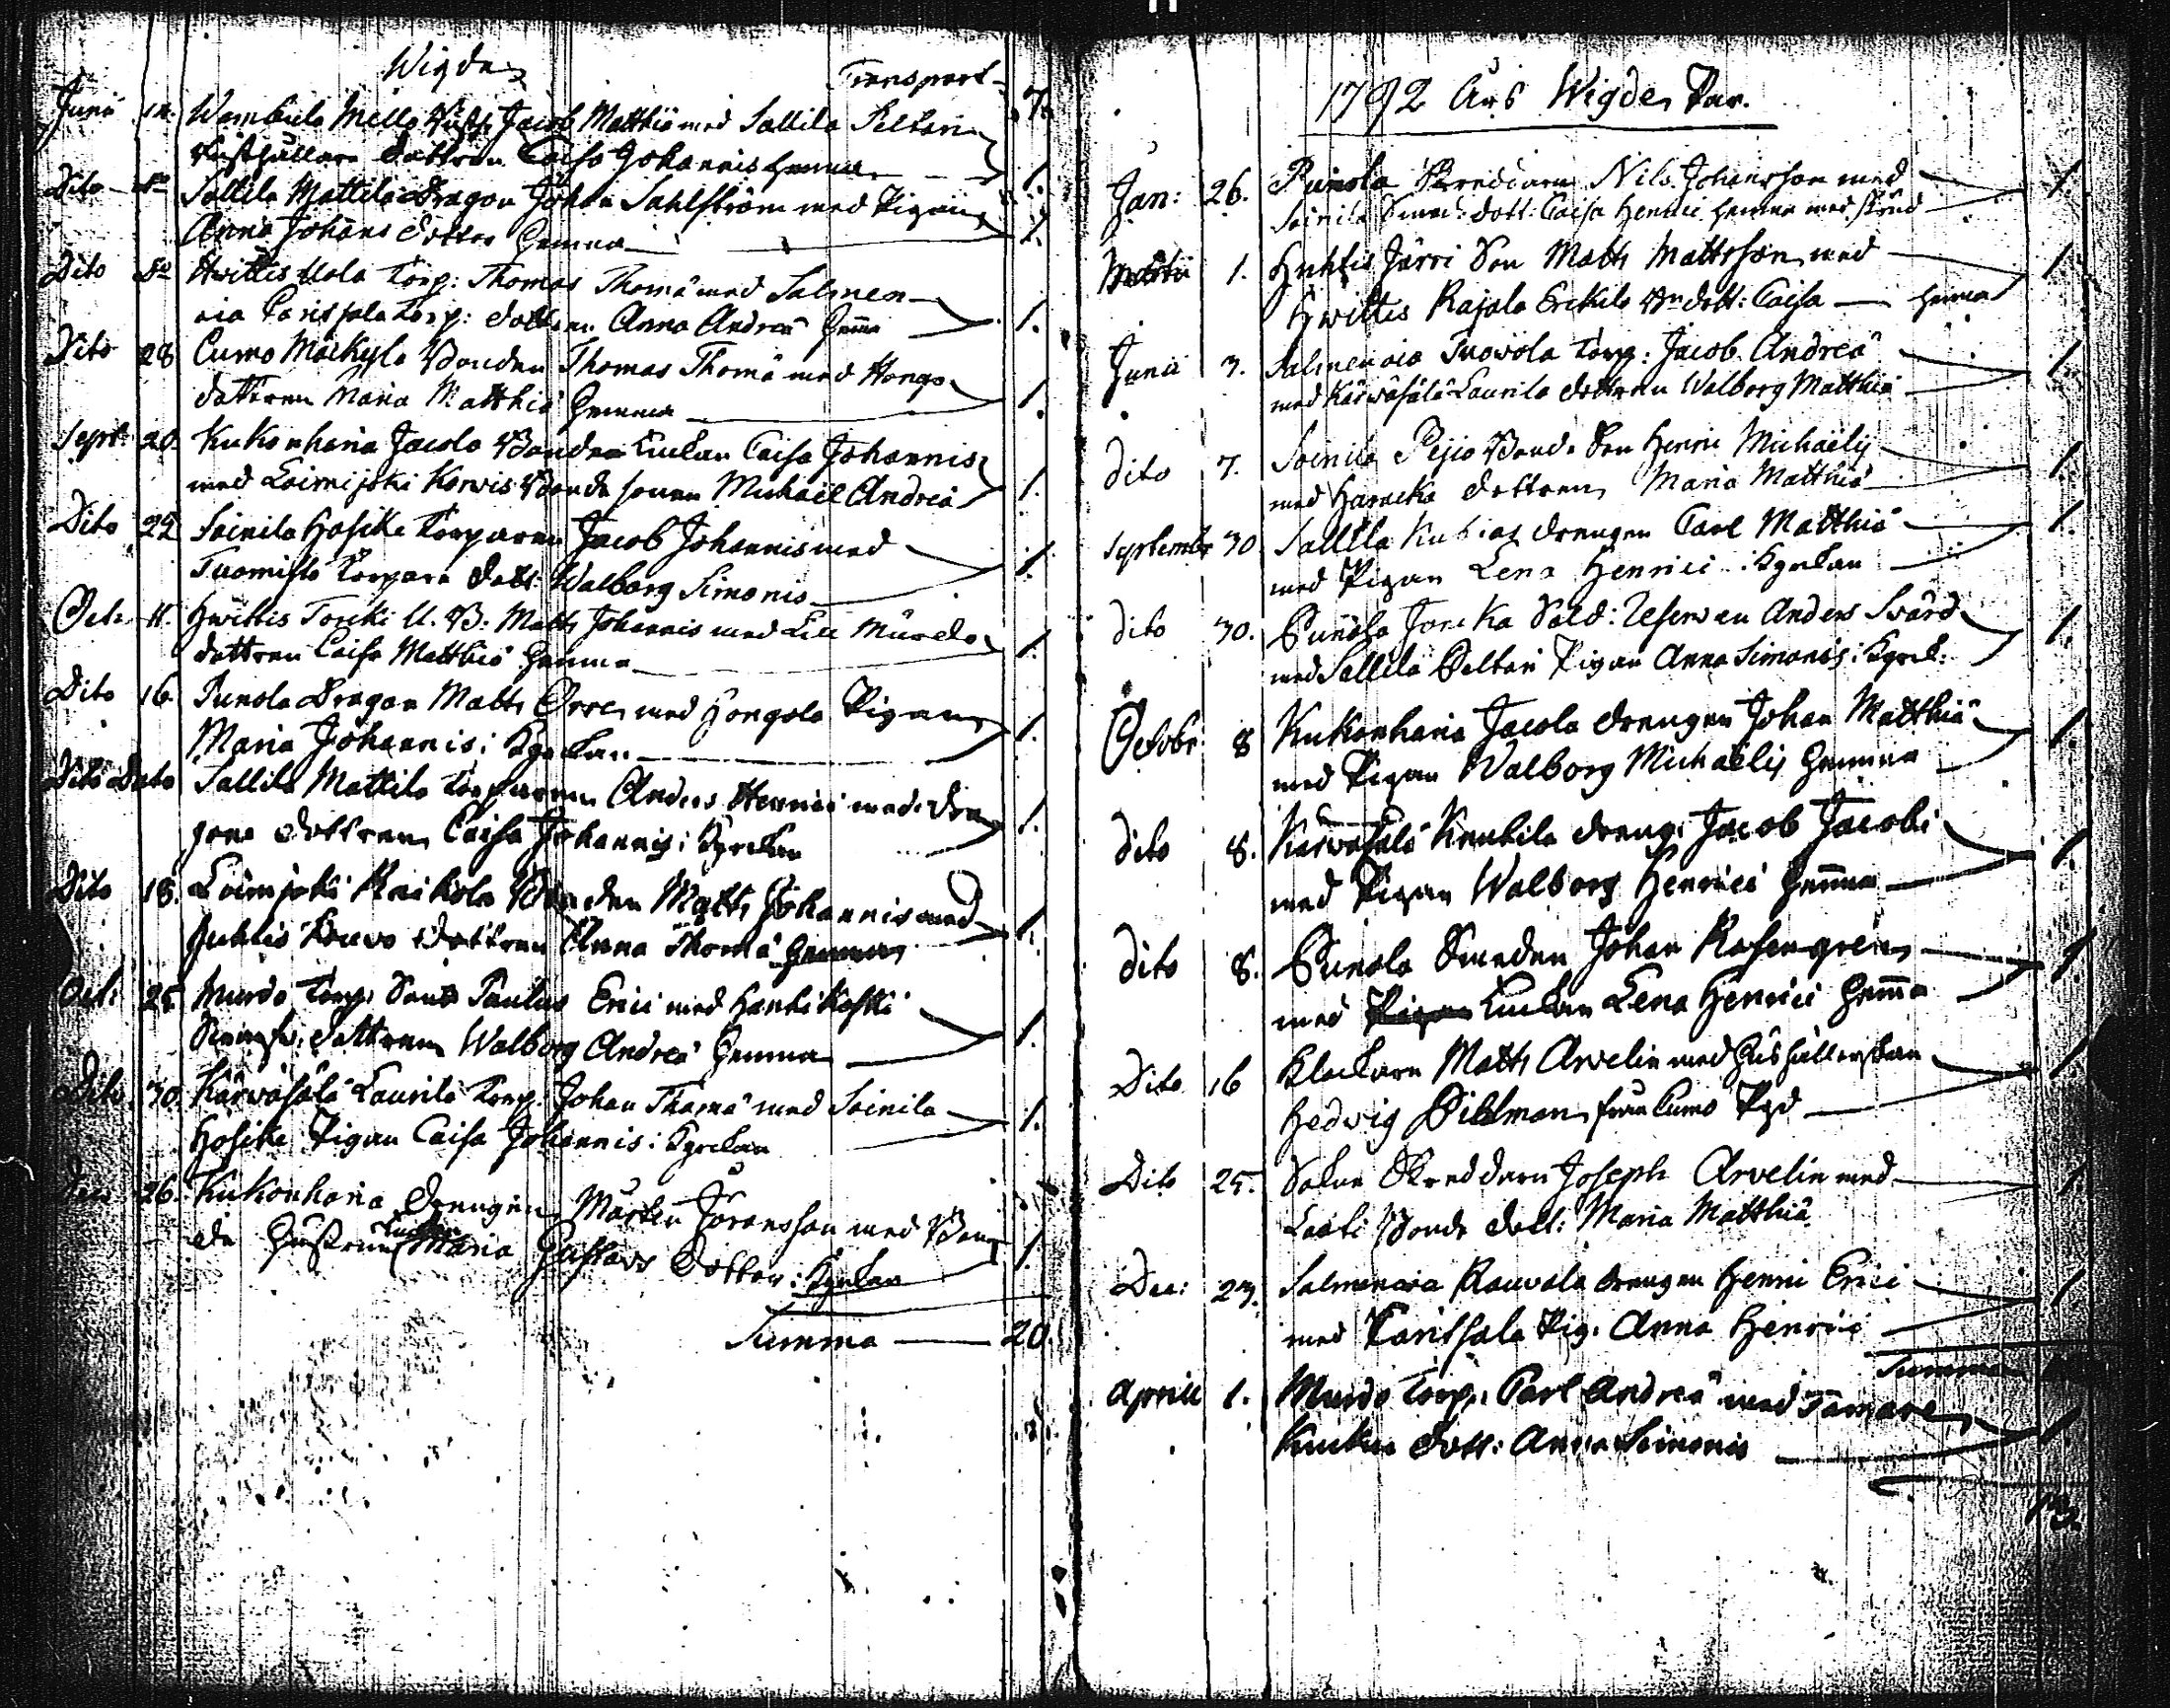 Wigde Transport 7.
Junii 12. Wambula Mella Jacob Matthiæ med Sallila Peltari
Rusthållare dottren Caisa Johannis hemma 1.
Dito do Sallila Mattila Dragon Johan Sahlström med Pigan
Anna Johans dotter hemma 1.
Dito do Hvittis Uola Torp: Thomas Thomæ med Salmen-
oia Torp: dottren Anna Andreæ hemma 1.
Dito 28 Cumo Bonden Thomas Thomæ med Hongo
dottren Maria Matthiæ hemma 1.
Sept: 20. Kukonharia Jacola Bonde Enkan Caisa Johannis
med Loimijoki Korwis Bonde sonen Michaël Andreæ 1.
Dito 29 Soinila Hosike Torparen Jacob Johannis med
Tuomisto Torpare dott: Walborg Simonis 1.
Oct: 11. Hwittis Torcki U. B: Matts Johannis med
dottren Caisa Matthiæ hemma 1.
Dito 16. Punola Dragon Matts Orre med Hongola Pigan
Maria Johannis i Kyrckan 1.
Dito Dato Sallila Mattila Torparen Anders Henrici med
dottren Caisa Johannis i Kyrckan 1.
Dito 18. Loimijoki Raikola Bonden Matts Johannis med
Huhtis Kouvo dottren Anna Thomæ hemma 1.
Oct: 25 Murdo Torp: Son Paulus Erici med Hanhikoski
dottren Walborg Andreæ hemma 1.
Dito 30. Kärwäsälä Laurila Torp: Johan Thomæ med Soinila
Hosike Pigan Caisa Johannis i Kyrckan 1.
Dec: 26. Kukonharia Drengen Mårten Jöransson med Bon-
de Hustrun Enckan Maria Gustavs Dotter i Kyrckan 1
Summa 20.
1792 Års Wigde Par.
Jan: 26. Punola Skreddaren Nils Johansson med
Soinila Smed: dott: Caisa Henrici hemma med 1.
Martii 1. Huhtis Järri Son Matts Mattsson med
Hwittis Rajala Erckila dott: Caisa hemma 1.
Junii 3. Salmenoia Tuovola Torp: Jacob Andreæ
med Kärwäsälä Laurila dottren Walborg Matthiæ 1.
Dito 7. Soinila Pejio Bonde Son Henric Michaëlis
med Haracka dottren Maria Matthiæ 1.
Septembr 30 Sallila drengen Carl Matthiæ
med Pigan Lena Henrici i Kyrckan 1.
Dito 30. Punola Sold: Anders Svärd
med Sallila Peltari Pigan Anna Simonis i Kyrck: 1.
Octobr 8 Kukonharia Jacola drengen Johan Matthiæ
med Pigan Walborg Michaëlis hemma 1.
Dito 8. Kärwäsälä Knutila dreng: Jacob Jacobi
med Pigan Walborg Henrici hemma 1.
Dito 8. Punola Smeden Johan Rosengren
med Enckan Lena Henrici hemma 1
Dito 16 Klockaren Matts Arvelin med Hushållerskan
Hedwig från Cumo 1
Dito 25. Sockne Skreddaren Joseph Arvelin med
Bonde dott: Maria Matthiæ 1
Dec: 23. Salmenoia Rauvola drengen Henric Erici
med Pig: Anna Henrici 1
Summa
Aprill 1. Murdo Torp: Carl Andreæ med Tamare
dott: Anna Simonis 1
13.